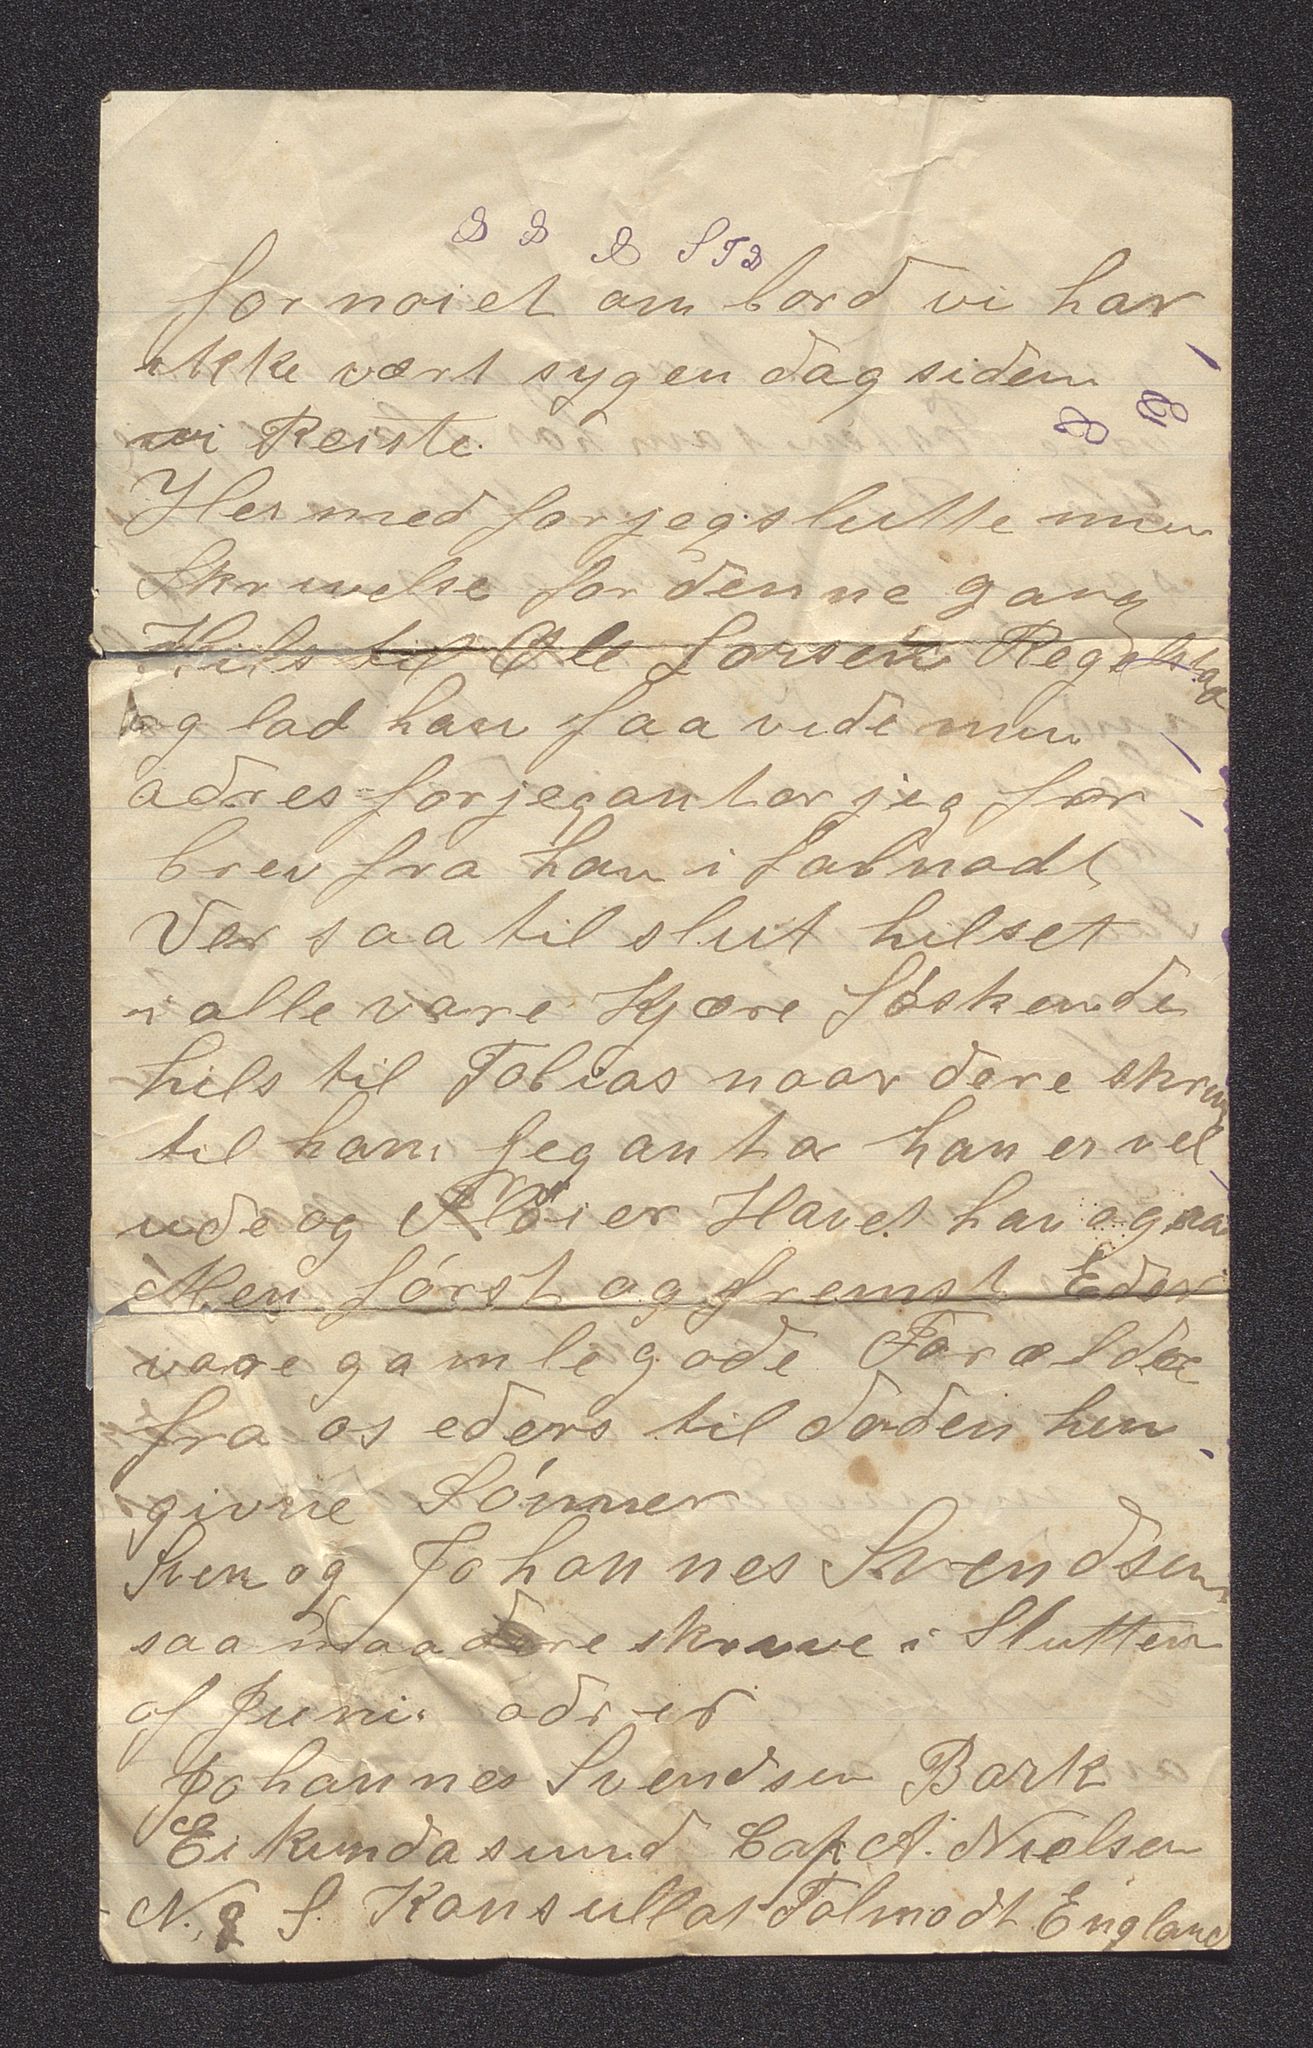 S T D
fornøiet om bord vi har
ikke vært syg en dag siden
vi Reiste.
Her med for jeg slutte min
Skrivelse for denne gang
Hils til Ole Larsen Regelstad
og lad han faa vide min
adres for jeg antar jeg faar
brev fra han i Falmodt
Ver saa til slut hilset
i alle vare Kjære Søskende
hils til Tobias naar dere skriv
til ham Jeg antar han er vel
ude og Pløier Havet han ogsaa
Men først og fremst Eder
vare gamle gode Forældre
fra os eders til døden hen
givne Sønner
Sven og Johannes Svendsen
saa maa dere skrive i Slutten
af Juni. adr er
Johannes Svendsen Bark
Eikundasund Cap A. Nielsen
N. & S. Konsullat Falmodt England